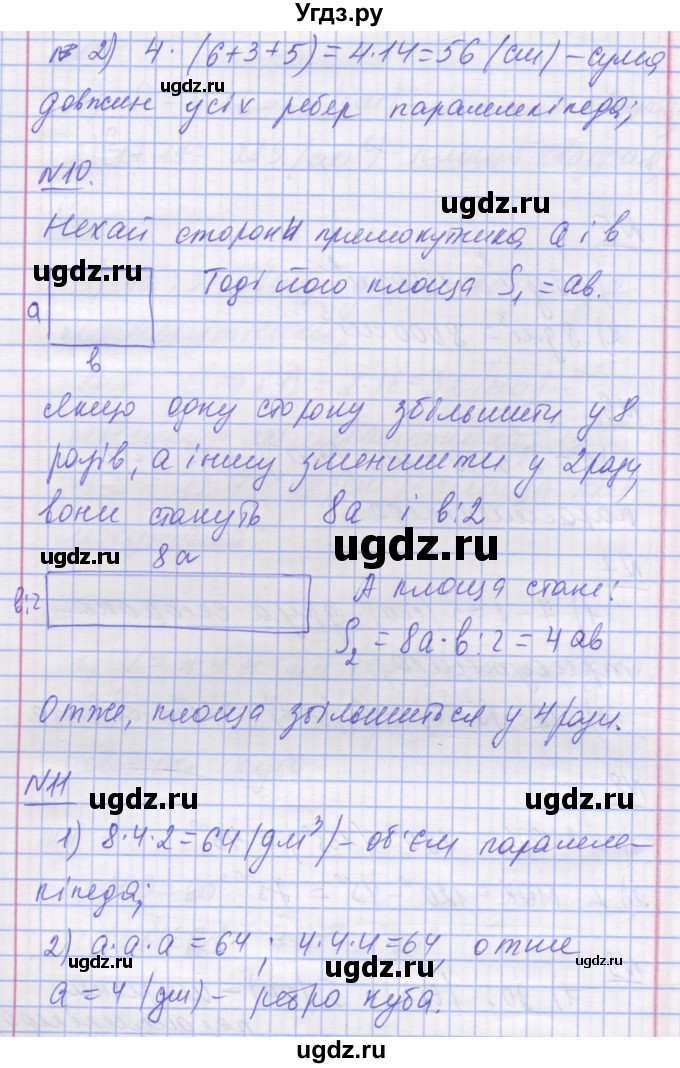 Угдз.ру
2) 4 · (6+3+5) = 4·14 = 56 (см) – сума
довжин усіх ребер паралелепіпеда;
N10.
Нехай сторони прямокутника a і b
ugdz.ru
ugdz.ru
Тоді його площа S₁ = ab.
a
ugdz.ru
b
Якщо одну сторону збільшити у 8
разів, а іншу зменшити у 2 рази,
вони стануть 8a і b:2
ugdz.ru
8a
ugdz.ru
b:2
А площа стане:
S₂ = 8a·b:2 = 4ab
Отже, площа збільшиться у 4 рази.
N11
ugdz.ru
ugdz.ru
1) 8·4·2 = 64 (дм³) – об'єм паралеле-
піпеда;
2) a·a·a = 64; 4·4·4 = 64, отже
ugdz.ru
ugdz.ru
a = 4 (дм) – ребро куба.
ugdz.ru